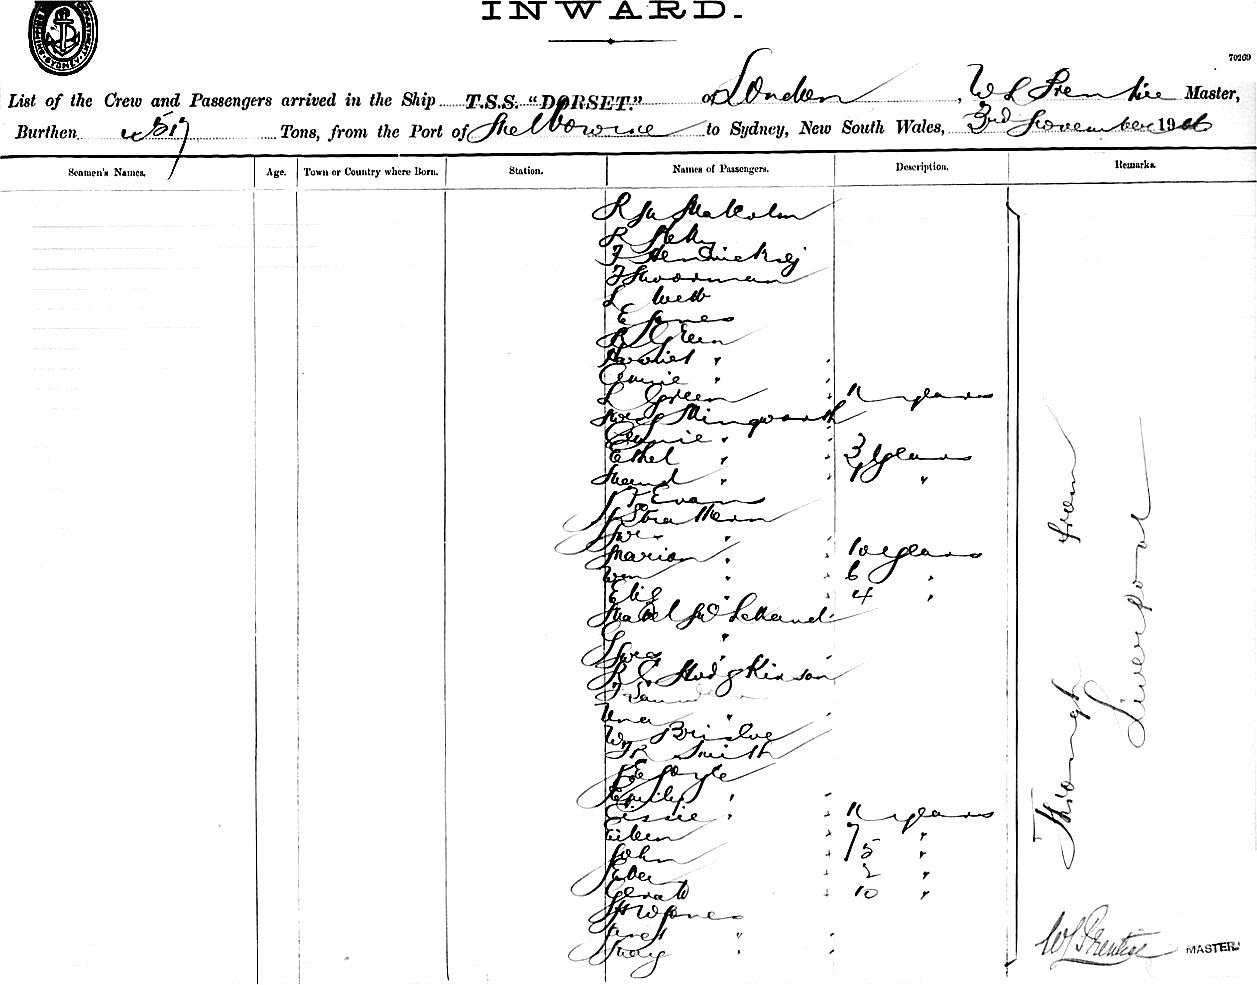 INWARD.
70269
List of the Crew and Passengers arrived in the Ship T.S.S. "DORSET." of London, W L Prentice Master,
Burthen 4517 Tons, from the Port of Melbourne to Sydney, New South Wales, 3rd November 19
Seamen's Names. Age. Town or Country where Born. Station. Names of Passengers. Description. Remarks.
R M Malcolm
F Moorman
L Webb
E Jones
R J Green
Harriet "
Annie "
L Green 11 years
Mrs Illingworth
Annie "
Ethel " 3 years
Maud " "
J F Evans
J Strathern
Mrs "
Marion " 10 years
Wm " 6 "
Elis " 4 "
Mabel McLelland
"
Mrs "
R C Hodgkinson
Una "
W Bristoe
F R Smith
Emily "
Cissie " 11 years
Eileen 7 "
John 5 "
2 "
Gerald 10 "
H W Jones
Janet "
Through from
Liverpool
WL Prentice MASTER.